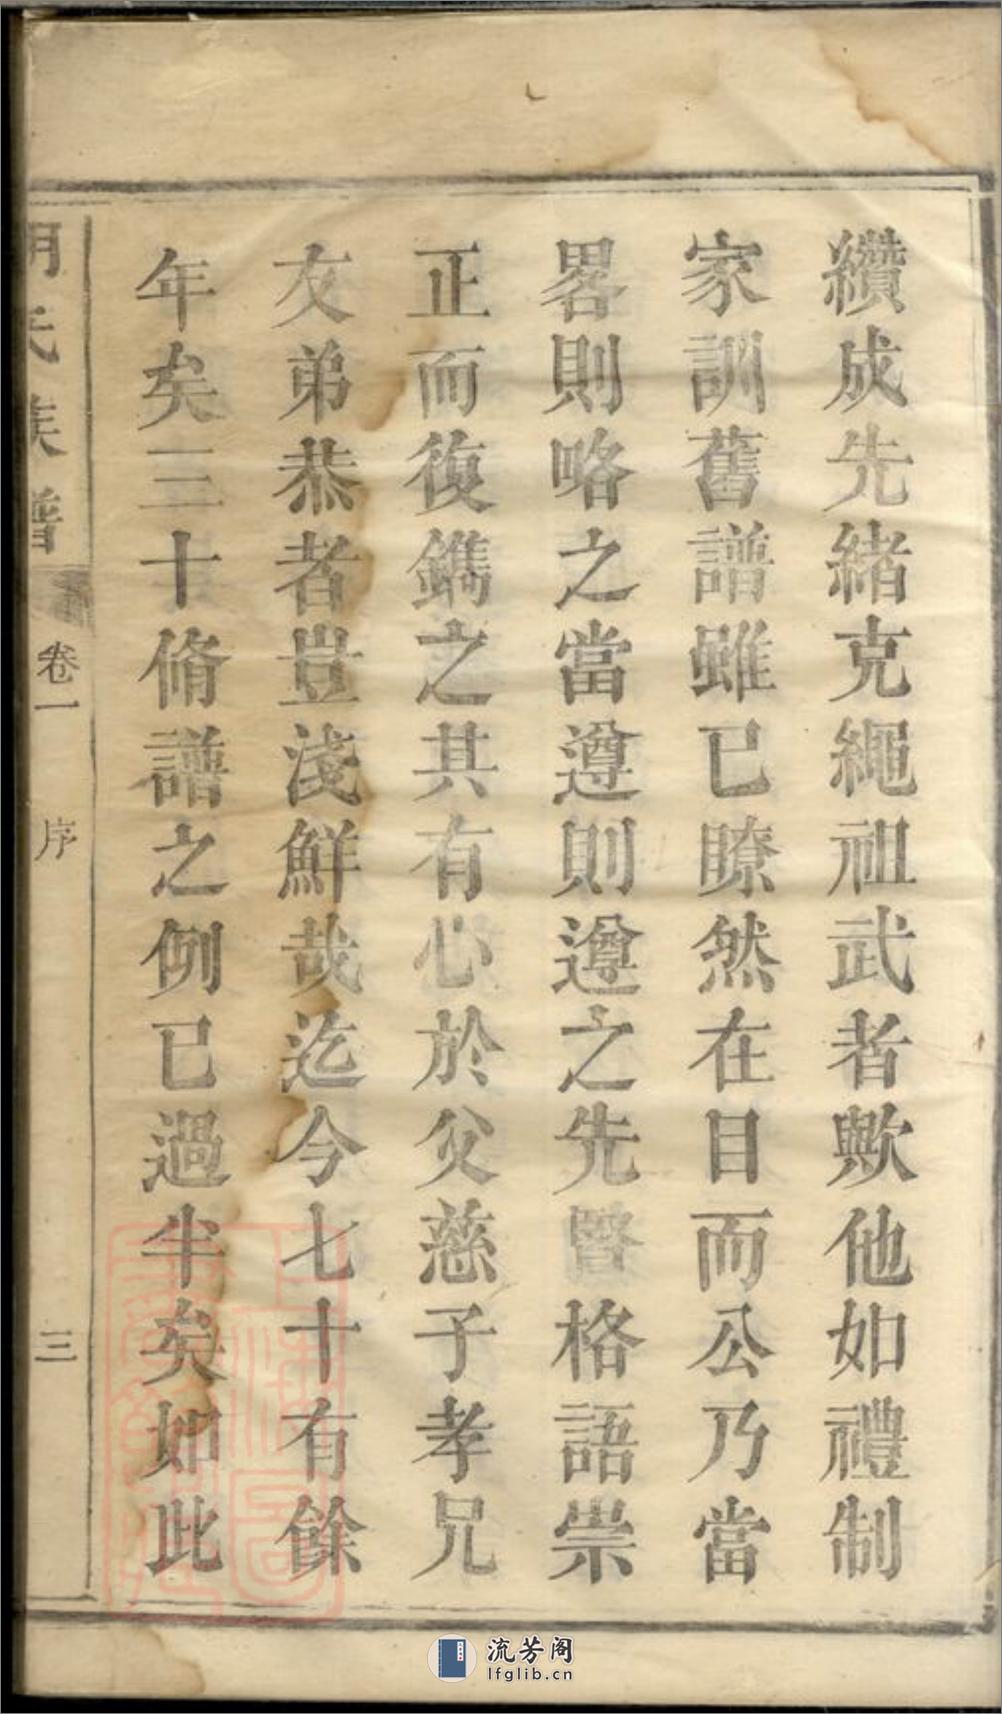 纘成先緒克繩祖武者歟他如禮制
家訓舊譜雖已瞭然在目而公乃當
畧則略之當遵則遵之先晢格語崇
正而復鐫之其有心於父慈子孝兄
友弟恭者豈淺鮮哉迄今七十有餘
年矣三十脩譜之例已過半矣如此
氏族譜
卷一
序
三
流芳阁
lfglib.cn